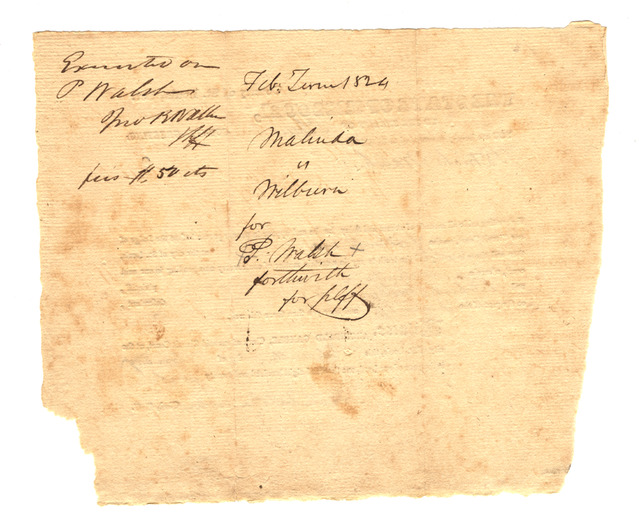 Executed on
P Walsh
Jno K Walker
Shff
fees $ 50 cts
Feb. Term 1824
Malinda
vs
Wilburn
for
P. Walsh +
forthwith
for plff